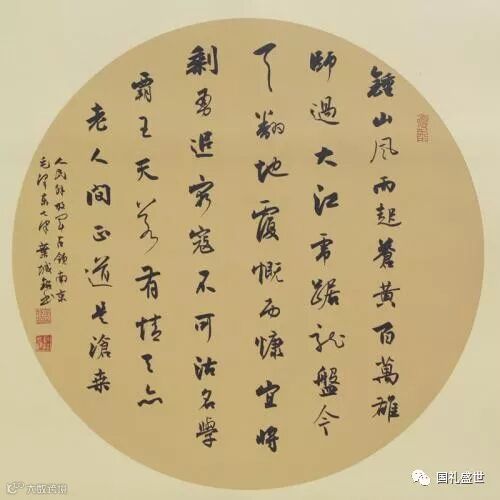 鍾山風雨起蒼黃百萬雄
師過大江虎踞龍盤今
天翻地覆慨而慷宜將
剩勇追窮寇不可沽名學
霸王天若有情天亦
老人間正道是滄桑
人民解放軍占領南京
毛澤東七律
国礼盛世